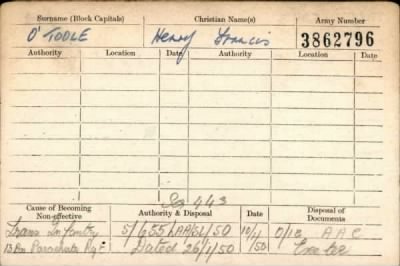 Surname (Block Capitals) Christian Name(s) Army Number
O'TOOLE Henry Francis 3862796
Authority Location Date Authority Location Date
Co 443
Cause of Becoming Non-effective Authority & Disposal Date Disposal of Documents
Trans Infantry S/655/AAC/51/50 10/1 O/ic A A C
13 Bn Parachute Rgt Dated 26/1/50 /50 Exeter